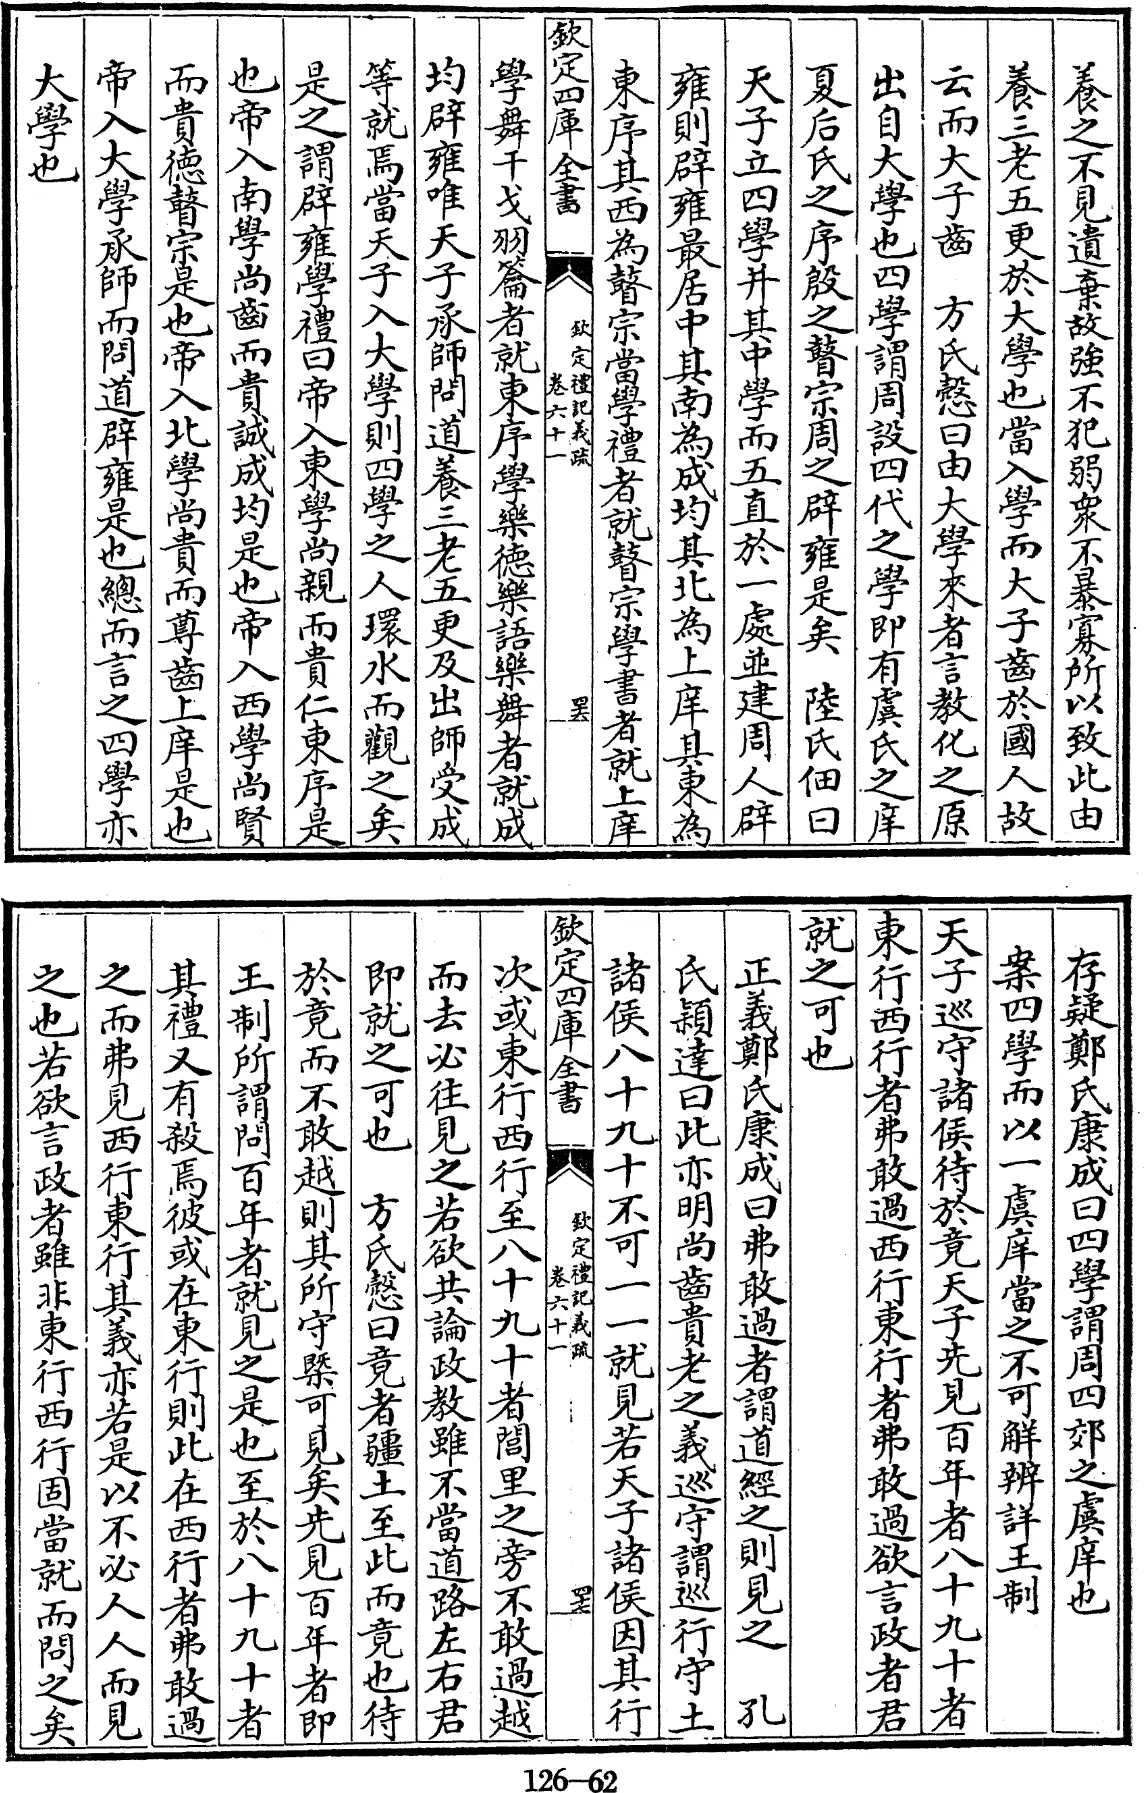 養之不見遺棄故強不犯弱衆不暴寡所以致此由
養三老五更於大學也當入學而大子齒於國人故
云而大子齒　方氏慤曰由大學來者言教化之原
出自大學也四學謂周設四代之學即有虞氏之庠
夏后氏之序殷之瞽宗周之辟雍是矣　陸氏佃曰
天子立四學并其中學而五直於一處並建周人辟
雍則辟雍最居中其南為成均其北為上庠其東為
東序其西為瞽宗當學禮者就瞽宗學書者就上庠
欽定四庫全書
欽定禮記義疏
卷六十一
學舞干戈羽籥者就東序學樂德樂語樂舞者就成
均辟雍唯天子承師問道養三老五更及出師受成
等就焉當天子入大學則四學之人環水而觀之矣
是之謂辟雍學禮曰帝入東學尚親而貴仁東序是
也帝入南學尚齒而貴誠成均是也帝入西學尚賢
而貴德瞽宗是也帝入北學尚貴而尊齒上庠是也
帝入大學承師而問道辟雍是也總而言之四學亦
大學也
存疑鄭氏康成曰四學謂周四郊之虞庠也
案四學而以一虞庠當之不可解辨詳王制
天子巡守諸侯待於竟天子先見百年者八十九十者
東行西行者弗敢過西行東行者弗敢過欲言政者君
就之可也
正義鄭氏康成曰弗敢過者謂道經之則見之　孔
氏穎達曰此亦明尚齒貴老之義巡守謂巡行守土
諸侯八十九十不可一一就見若天子諸侯因其行
欽定四庫全書
欽定禮記義疏
卷六十一
次或東行西行至八十九十者閭里之旁不敢過越
而去必往見之若欲共論政教雖不當道路左右君
即就之可也　方氏慤曰竟者疆土至此而竟也待
於竟而不敢越則其所守槩可見矣先見百年者即
王制所謂問百年者就見之是也至於八十九十者
其禮又有殺焉彼或在東行則此在西行者弗敢過
之而弗見西行東行其義亦若是以不必人人而見
之也若欲言政者雖非東行西行固當就而問之矣
126—62